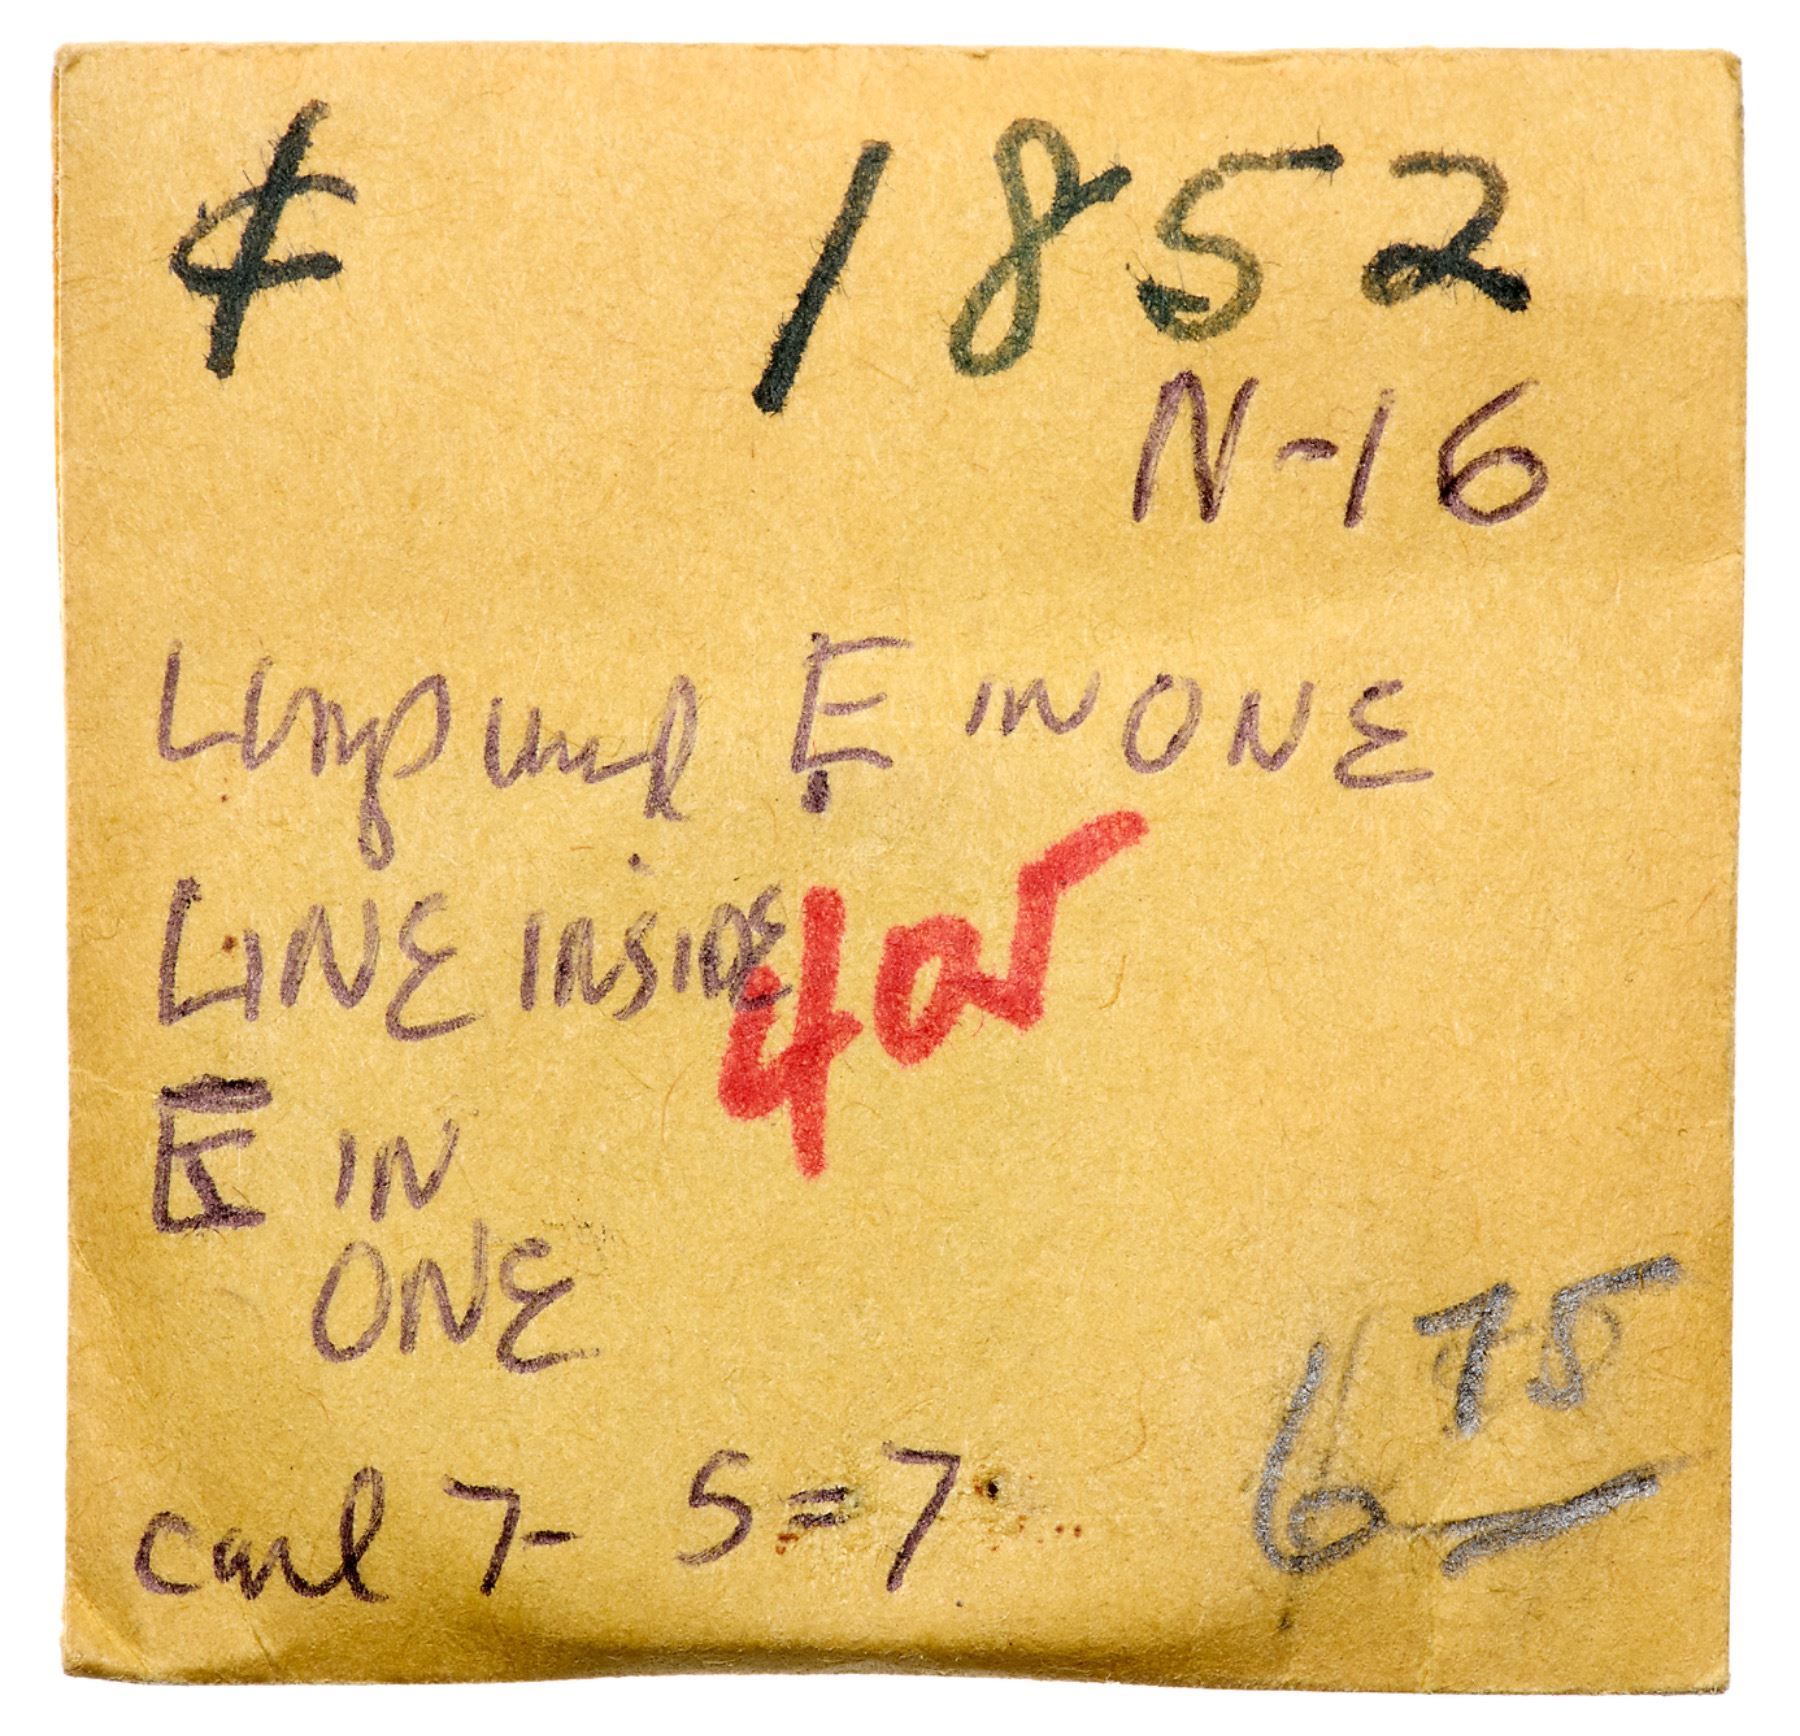 ¢ 1852
N-16
Lump under E in ONE
LINE INSIDE
E IN
ONE
400
curl 7- 5=7
6 75